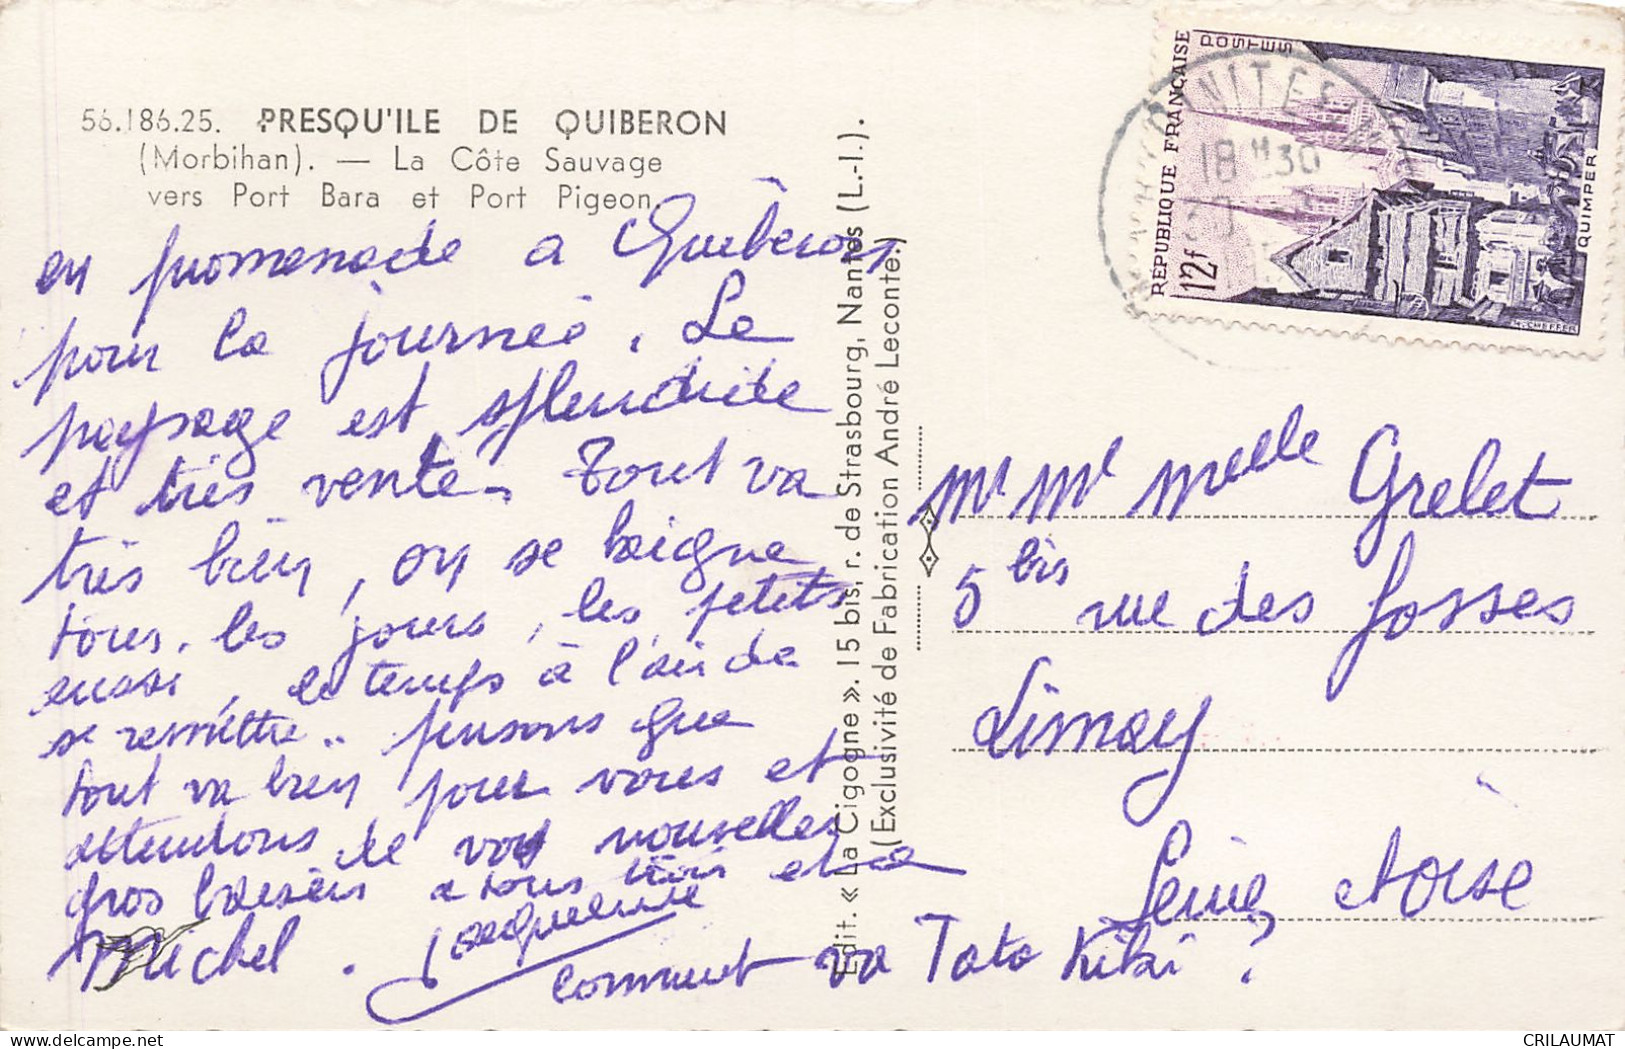 56.186.25. PRESQU'ILE DE QUIBERON
(Morbihan). — La Côte Sauvage
vers Port Bara et Port Pigeon
en promenade a Quiberon,
pour la journée. Le
paysage est splendide
et très venté. Tout va
très bien, on se baigne
tous les jours, les petits
aussi, le temps à l'air de
se remettre.. pensons que
tout va bien pour vous et
attendons de vos nouvelles
gros baisers a tous trois et a
Michel. Jacqueline
comment va Tata Kiki ?
Edit. « La Cigogne ». 15 bis, r. de Strasbourg, Nantes (L.-I.).
(Exclusivité de Fabrication André Leconte.)
RÉPUBLIQUE FRANÇAISE
POSTES
12f
QUIMPER
18 H 30
Mr Me Melle Grelet
5 bis rue des fosses
Limay
Seine et Oise
CRILAUMAT